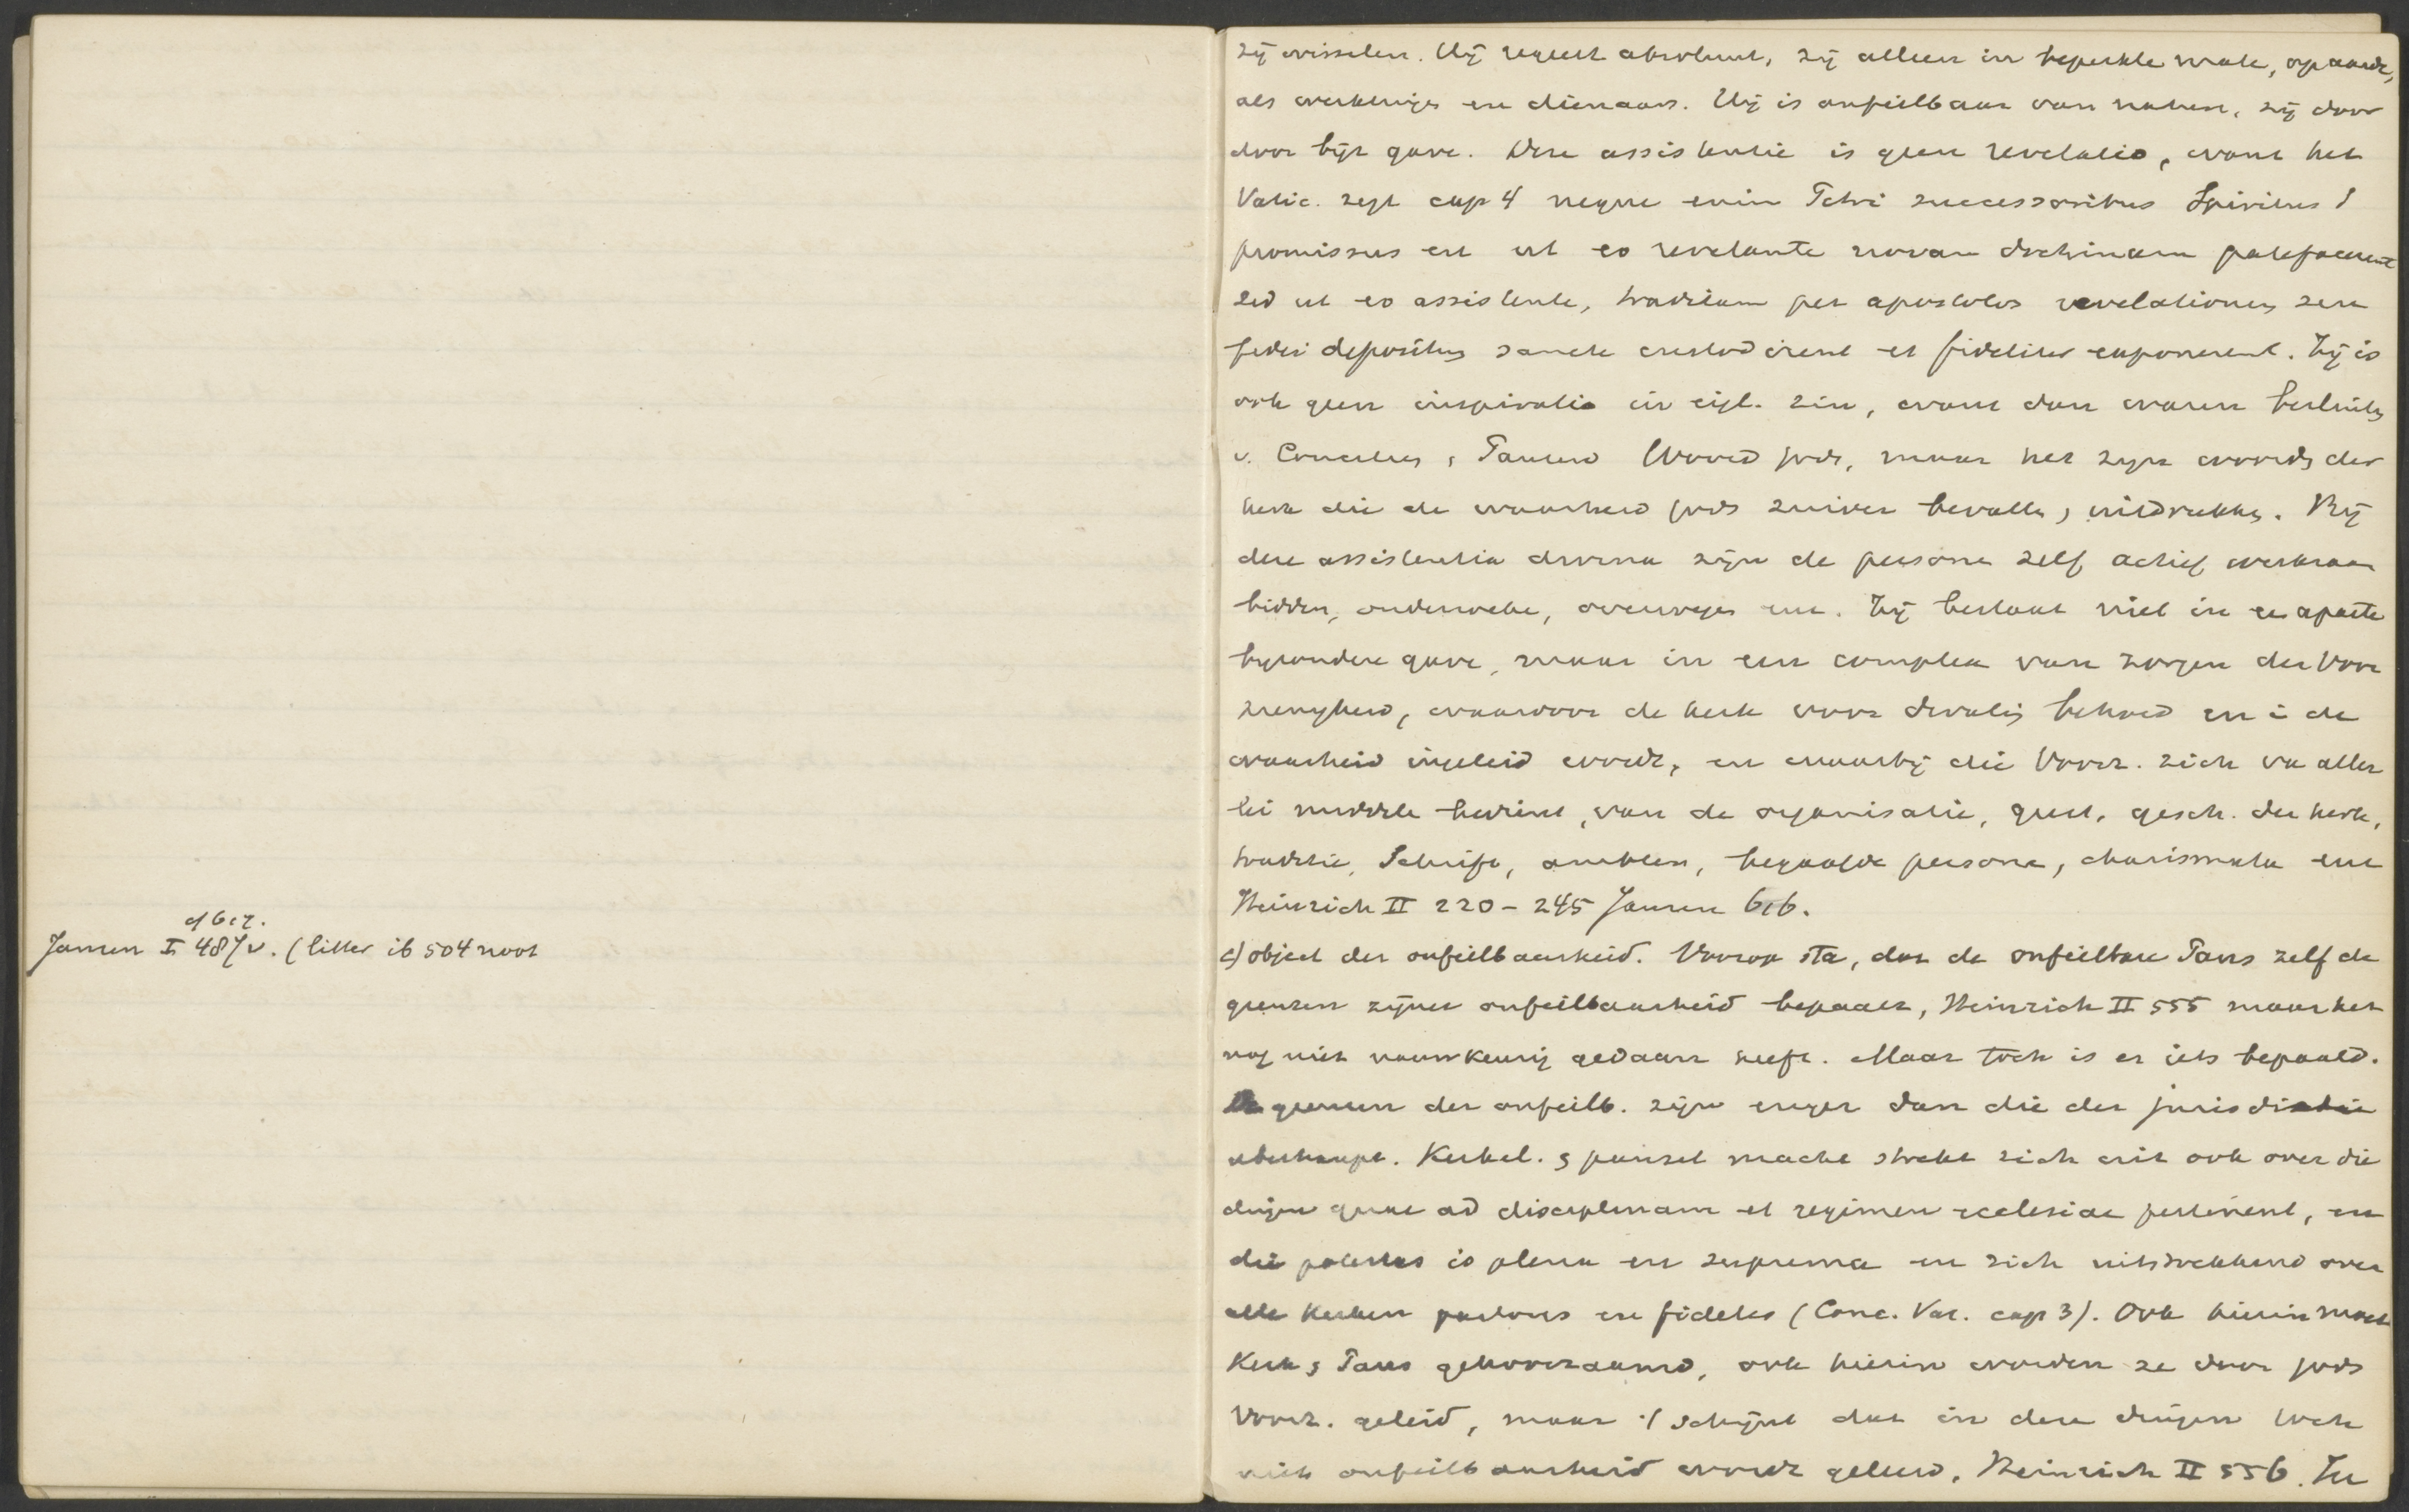 zij wisselen. Hij regeert absoluut, zij alleen in beperkte mate, op aarde,
als werktuigen en dienaars. Hij is onfeilbaar van nature, zij door
door bijz gave. Deze assistentie is geen revelatio, want het
Vatic. zegt cap 4 neque enim Petri successoribus Spiritus S
promissus est ut eo revelante novam doctrinam patefacerent
sed ut eo assistente, traditam per apostolos revelationem seu
fidei depositum sancte custodirent et fideliter exponerent. Zij is
ook geen inspiratio in eigl. zin, want dan waren besluiten
v. Concilies & Pausen Woord Gods, maar het zijn woorden der
kerk die de waarheid Gods zuiver bevatten, uitdrukken. Bij
deze assistentia divina zijn de personen zelf actief werkzaam
bidden, onderzoeken, overwegen enz. Zij bestaat niet in een aparte
bijzondere gave, maar in een complex van zorgen der Voor
zienigheid, waardoor de kerk voor dwaling behoed en in de
waarheid ingeleid wordt, en waarbij die Voorz. zich van aller
lei middelen bedient, van de organisatie, geest, gesch. der kerk,
traditie, Schrift, ambten, begaafde personen, charismata enz
Heinrich II 220-245 Jansen 616.
cf 617.
Jansen I 487v. (litter ib 504 noot
c) object der onfeilbaarheid. Voorop sta, dat de onfeilbare Paus zelf de
grenzen zijner onfeilbaarheid bepaalt, Heinrich II 555 maar het
nog niet nauwkeurig gedaan heeft. Maar toch is er iets bepaald.
De grenzen der onfeilb. zijn enger dan die der jurisdictie
überhaupt. Kerkel. & pausel macht strekt zich uit ook over die
dingen quae ad disciplinam et regimen ecclesiae pertinent, en
die potestas is plena en suprema en zich uitstrekkend over
alle kerken pastores en fideles (Conc. Vat. cap 3). Ook hierin moet
Kerk & Paus gehoorzaamd, ook hierin worden ze door Gods
Voorz. geleid, maar 't schijnt dat in deze dingen toch
niet onfeilbaarheid wordt geleerd, Heinrich II 556. In